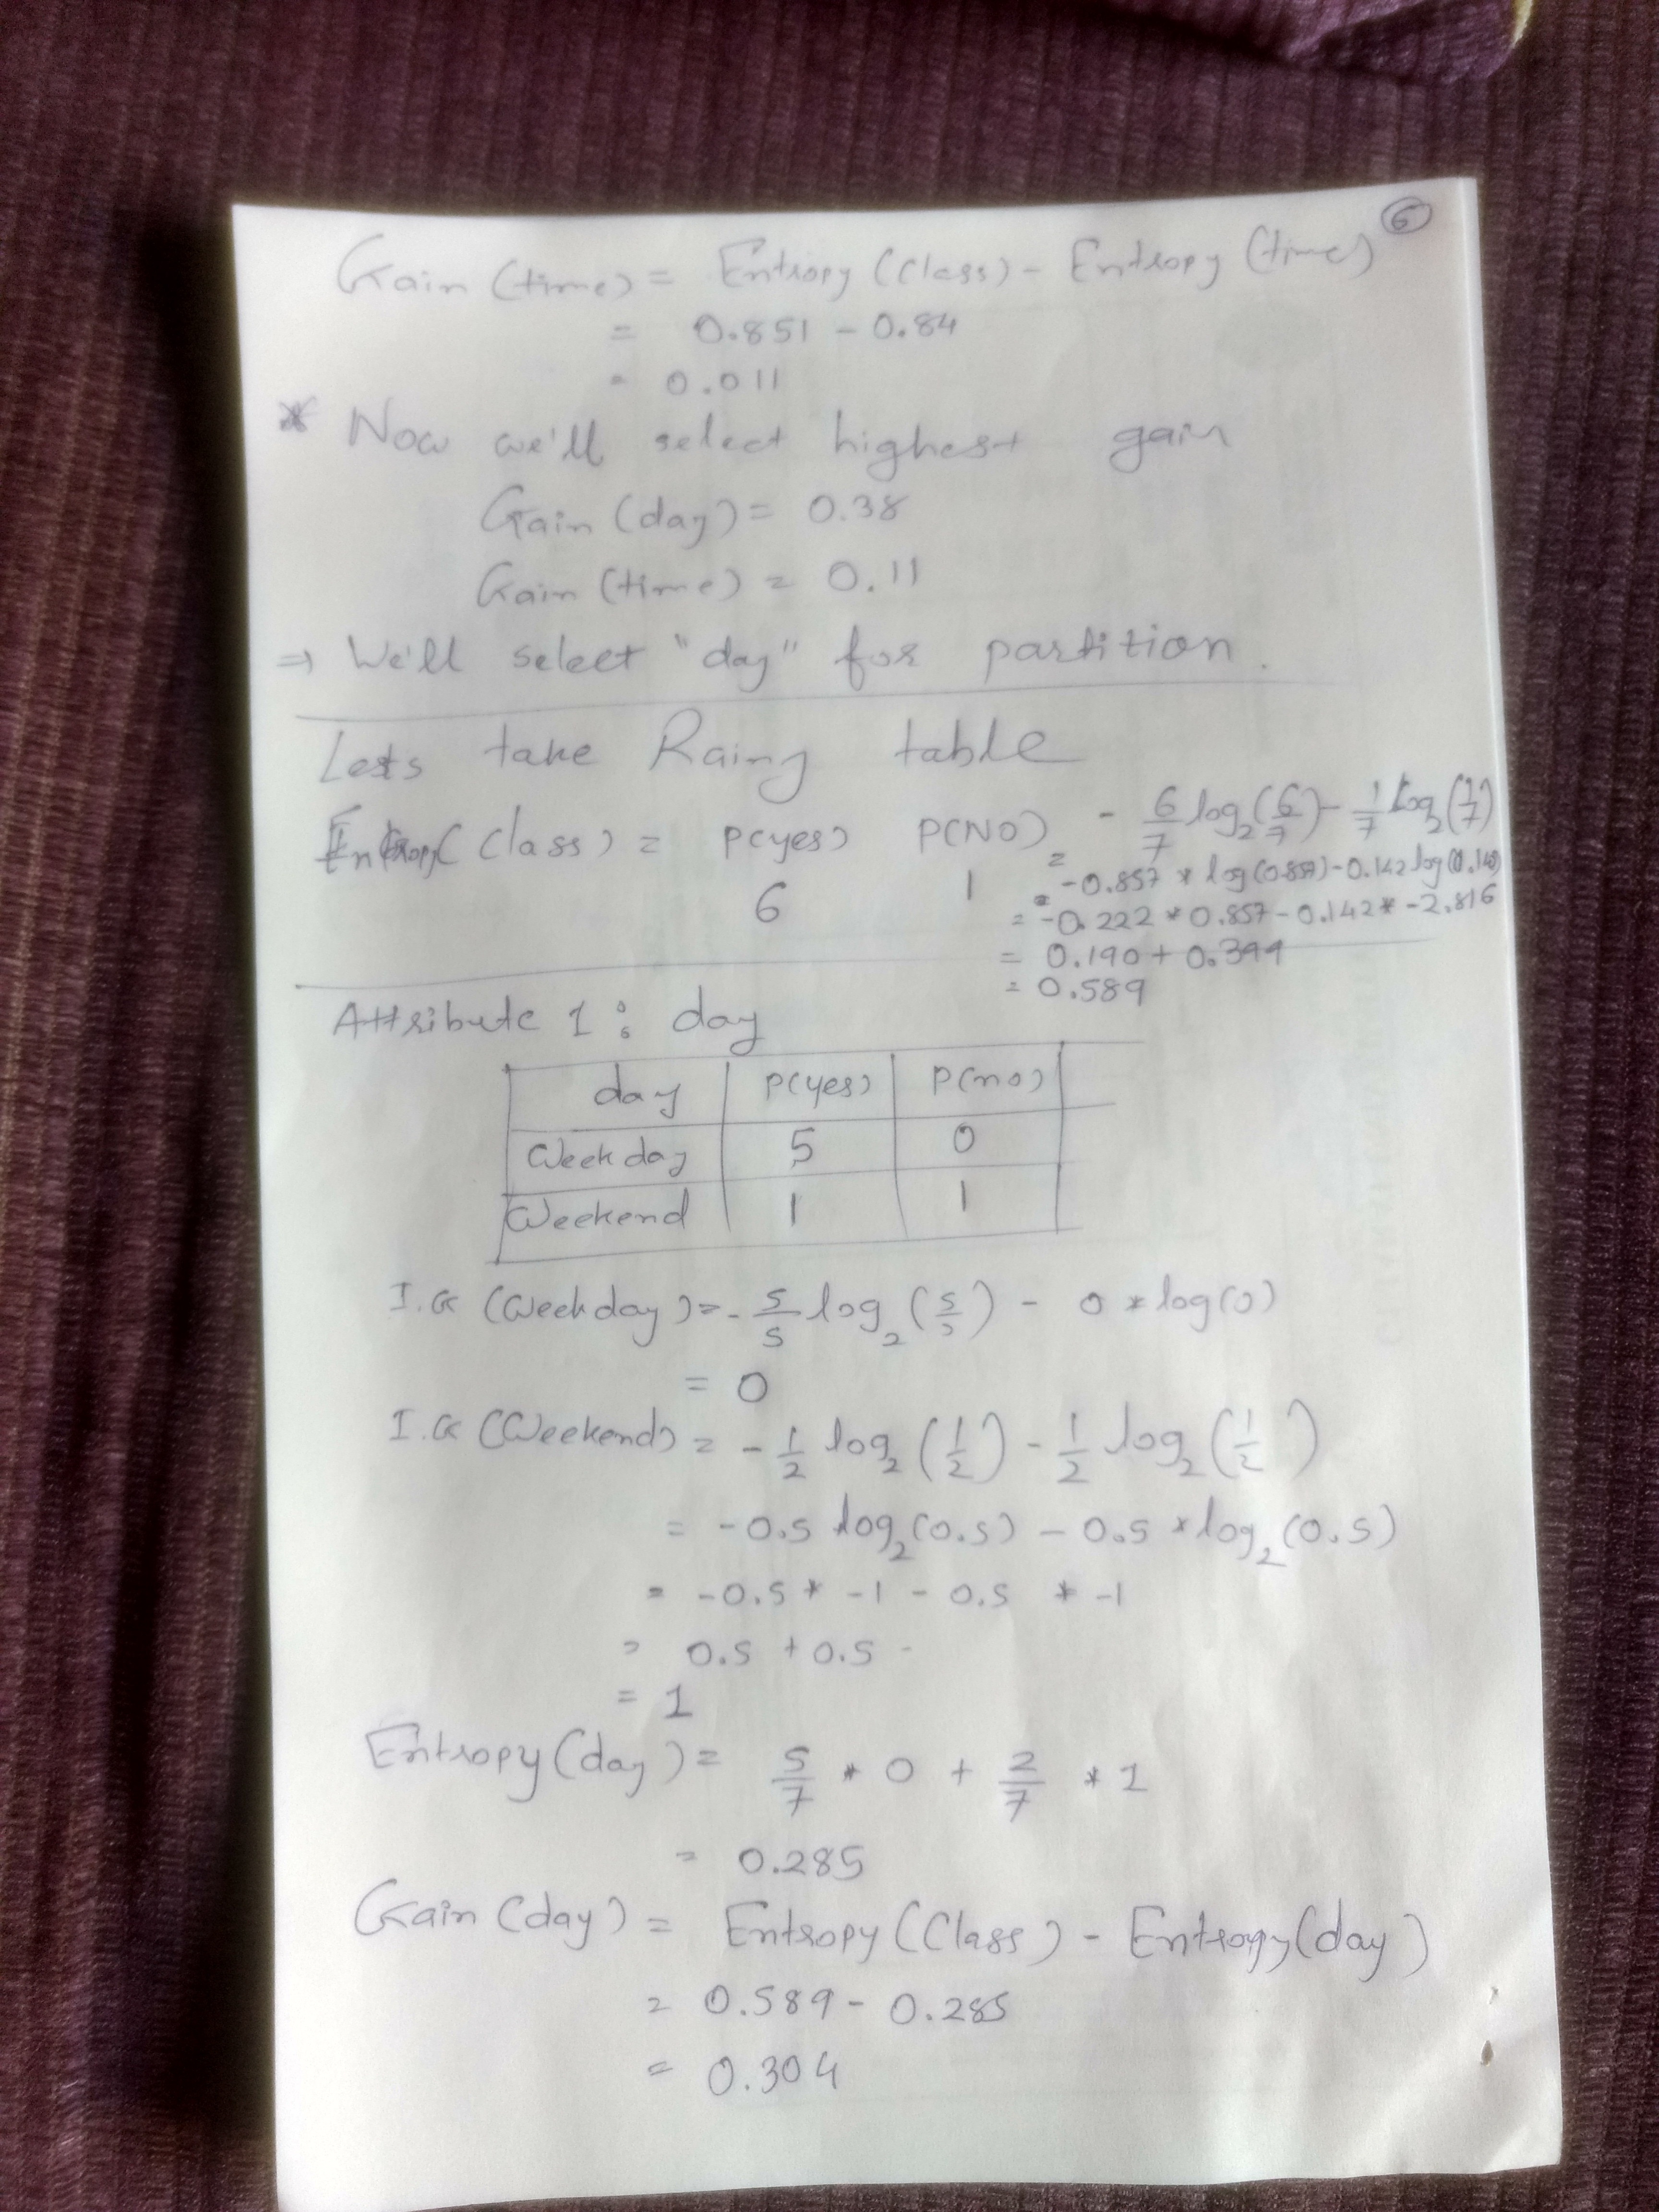 6
Gain (time) = Entropy (Class) - Entropy (time)
= 0.851 - 0.84
= 0.011
* Now we'll select highest gain
Gain (day) = 0.38
Gain (time) = 0.11
⇒ We'll select "day" for partition.
Lets take Rainy table
Entropy (Class) = P(yes) P(NO) = - 6/7 log₂(6/7) - 1/7 log₂(1/7)
6 1 = -0.857 * log(0.857) - 0.142 log(0.142)
= -0.222 * 0.857 - 0.142 * -2.816
= 0.190 + 0.399
= 0.589
Attribute 1 : day
day P(yes) P(no)
Weekday 5 0
Weekend 1 1
I.G (Weekday) = - 5/5 log₂ (5/5) - 0 * log(0)
= 0
I.G (Weekend) = - 1/2 log₂ (1/2) - 1/2 log₂ (1/2)
= -0.5 log₂(0.5) - 0.5 * log₂(0.5)
= -0.5 * -1 - 0.5 * -1
= 0.5 + 0.5
= 1
Entropy (day) = 5/7 * 0 + 2/7 * 1
= 0.285
Gain (day) = Entropy (Class) - Entropy (day)
= 0.589 - 0.285
= 0.304